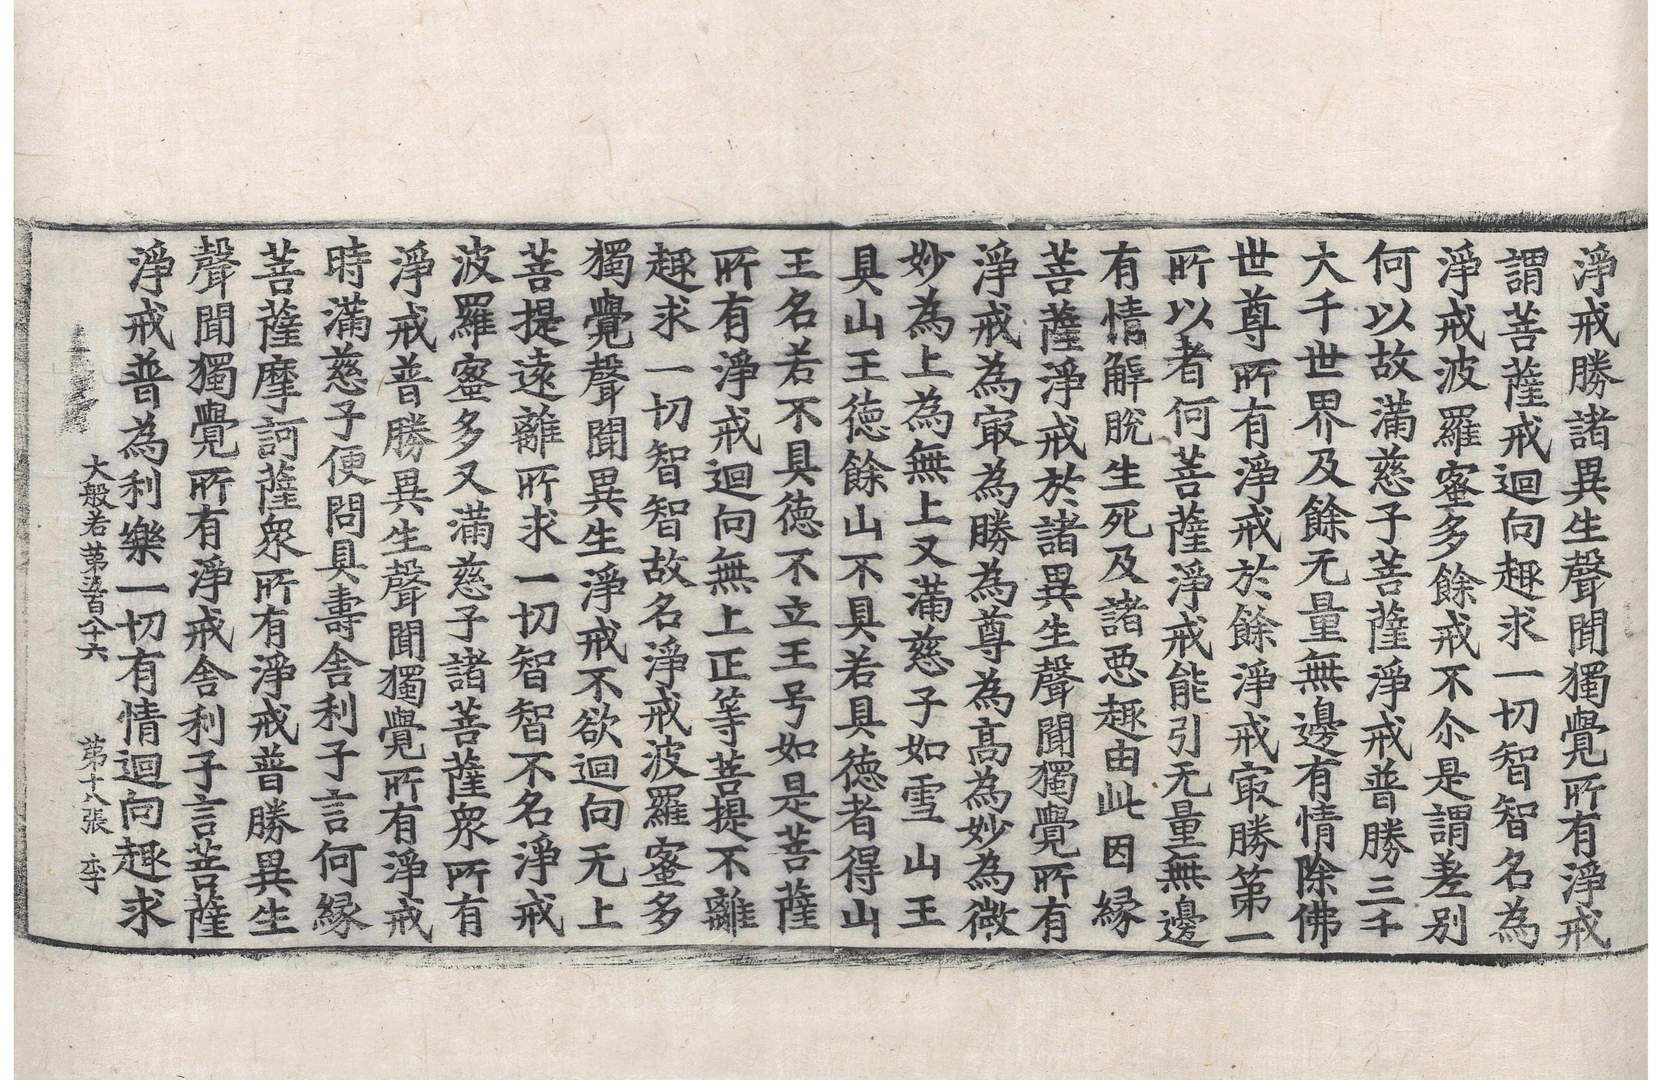 淨戒勝諸異生聲聞獨覺所有淨戒
謂菩薩戒迴向趣求一切智智名為
淨戒波羅蜜多餘戒不尒是謂差別
何以故滿慈子菩薩淨戒普勝三千
大千世界及餘无量無邊有情除佛
世尊所有淨戒於餘淨戒㝡勝第一
所以者何菩薩淨戒能引无量無邊
有情解脫生死及諸惡趣由此因緣
菩薩淨戒於諸異生聲聞獨覺所有
淨戒為㝡為勝為尊為高為妙為微
妙為上為無上又滿慈子如雪山王
具山王德餘山不具若具德者得山
王名若不具德不立王号如是菩薩
所有淨戒迴向無上正等菩提不離
趣求一切智智故名淨戒波羅蜜多
獨覺聲聞異生淨戒不欲迴向无上
菩提遠離所求一切智智不名淨戒
波羅蜜多又滿慈子諸菩薩眾所有
淨戒普勝異生聲聞獨覺所有淨戒
時滿慈子便問具壽舍利子言何緣
菩薩摩訶薩眾所有淨戒普勝異生
聲聞獨覺所有淨戒舍利子言菩薩
淨戒普為利樂一切有情迴向趣求
大般若第五百八十六 第十八張 李